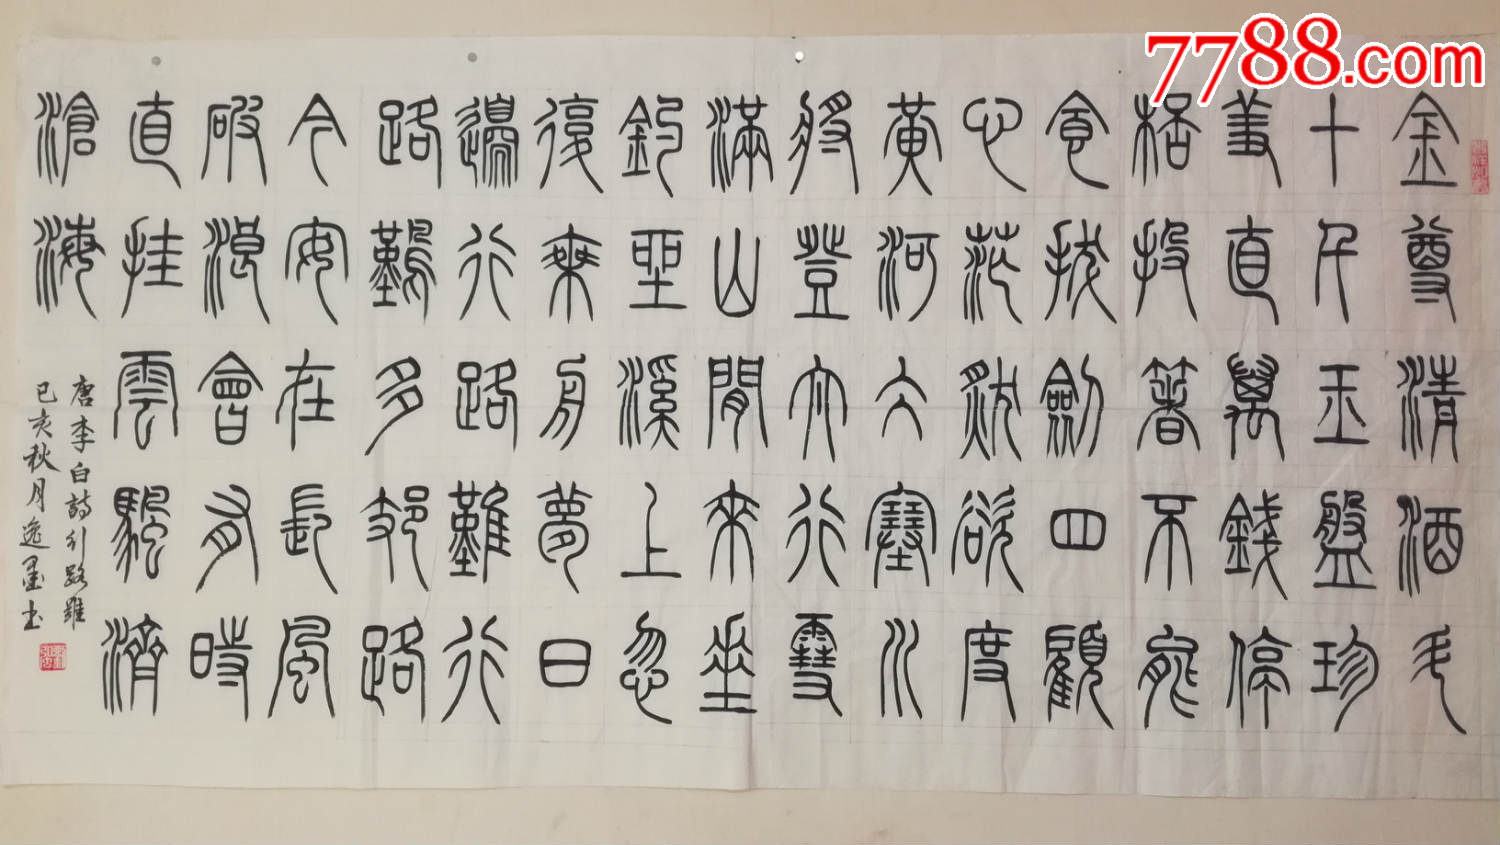 金尊清酒斗
十千玉盤珍
羞直萬錢停
桮投箸不能
食拔劍四顧
心茫然欲度
黃河仌塞川
將登太行雪
滿山閒來坐
釣垂溪上忽
復乘舟夢日
邊行路難行
路難多歧路
今安在長風
破浪會有時
直挂雲帆濟
滄海
唐李白詩行路難
己亥秋月逸墨书
7788.com